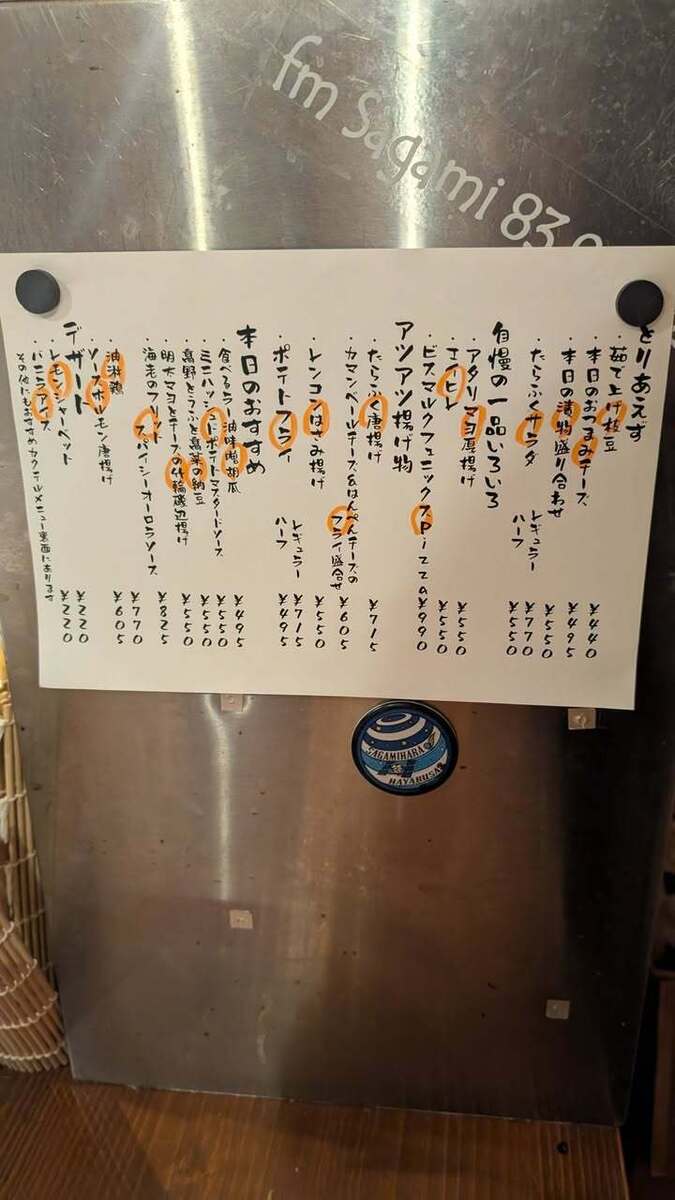 fm Sagami 83.9
とりあえず
・茹で上げ枝豆 ¥440
・本日のおつまみチーズ ¥495
・本日の漬物盛り合わせ ¥550
・たらふくサラダ レギュラー ¥770
ハーフ ¥550
自慢の一品いろいろ
・アタリマヨ厚揚げ ¥550
・エイヒレ ¥550
・ビスマルクフェニックスPizza ¥990
アツアツ揚げ物
・たらふく唐揚げ ¥715
・カマンベールチーズ&はんぺんチーズの
フライ盛合せ ¥605
・レンコンはさみ揚げ ¥550
・ポテトフライ レギュラー ¥715
ハーフ ¥495
本日のおすすめ
・食べるラー油味噌胡瓜 ¥495
・ミニハッシュドポテトマスタードソース ¥550
・高野とうふと高菜の納豆 ¥550
・明太マヨとチーズの竹輪磯辺揚げ ¥550
・海老のフリット
スパイシーオーロラソース ¥825
・油淋鶏 ¥770
・ソーホルモン唐揚げ ¥605
デザート
・レモンシャーベット ¥220
・バニラアイス ¥220
その他にもおすすめカクテルメニュー裏面にあります
SAGAMIHARA
HAYABUSA